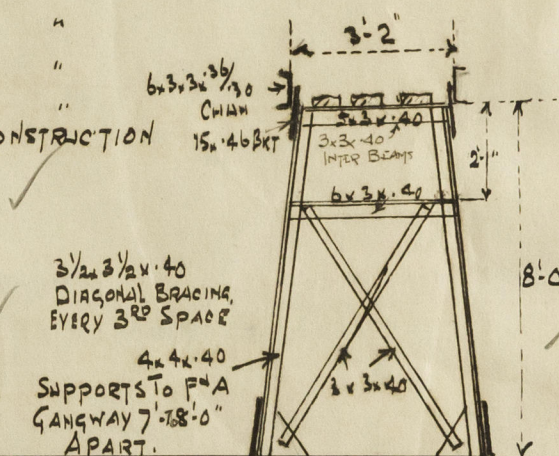 "
"
"
ONSTRUCTION
3'-2"
6x3x3x.36/.30
CHAN
15x.46 BKT
5x3x.40
3x3x.40
INTER BEAMS
2'-"
6x3x.40
3½x3½x.40
DIAGONAL BRACING,
EVERY 3RD SPACE
8'-0
4x4x.40
SUPPORTS TO F&A
GANGWAY 7'-TO 8'-0"
APART.
3x3x.40